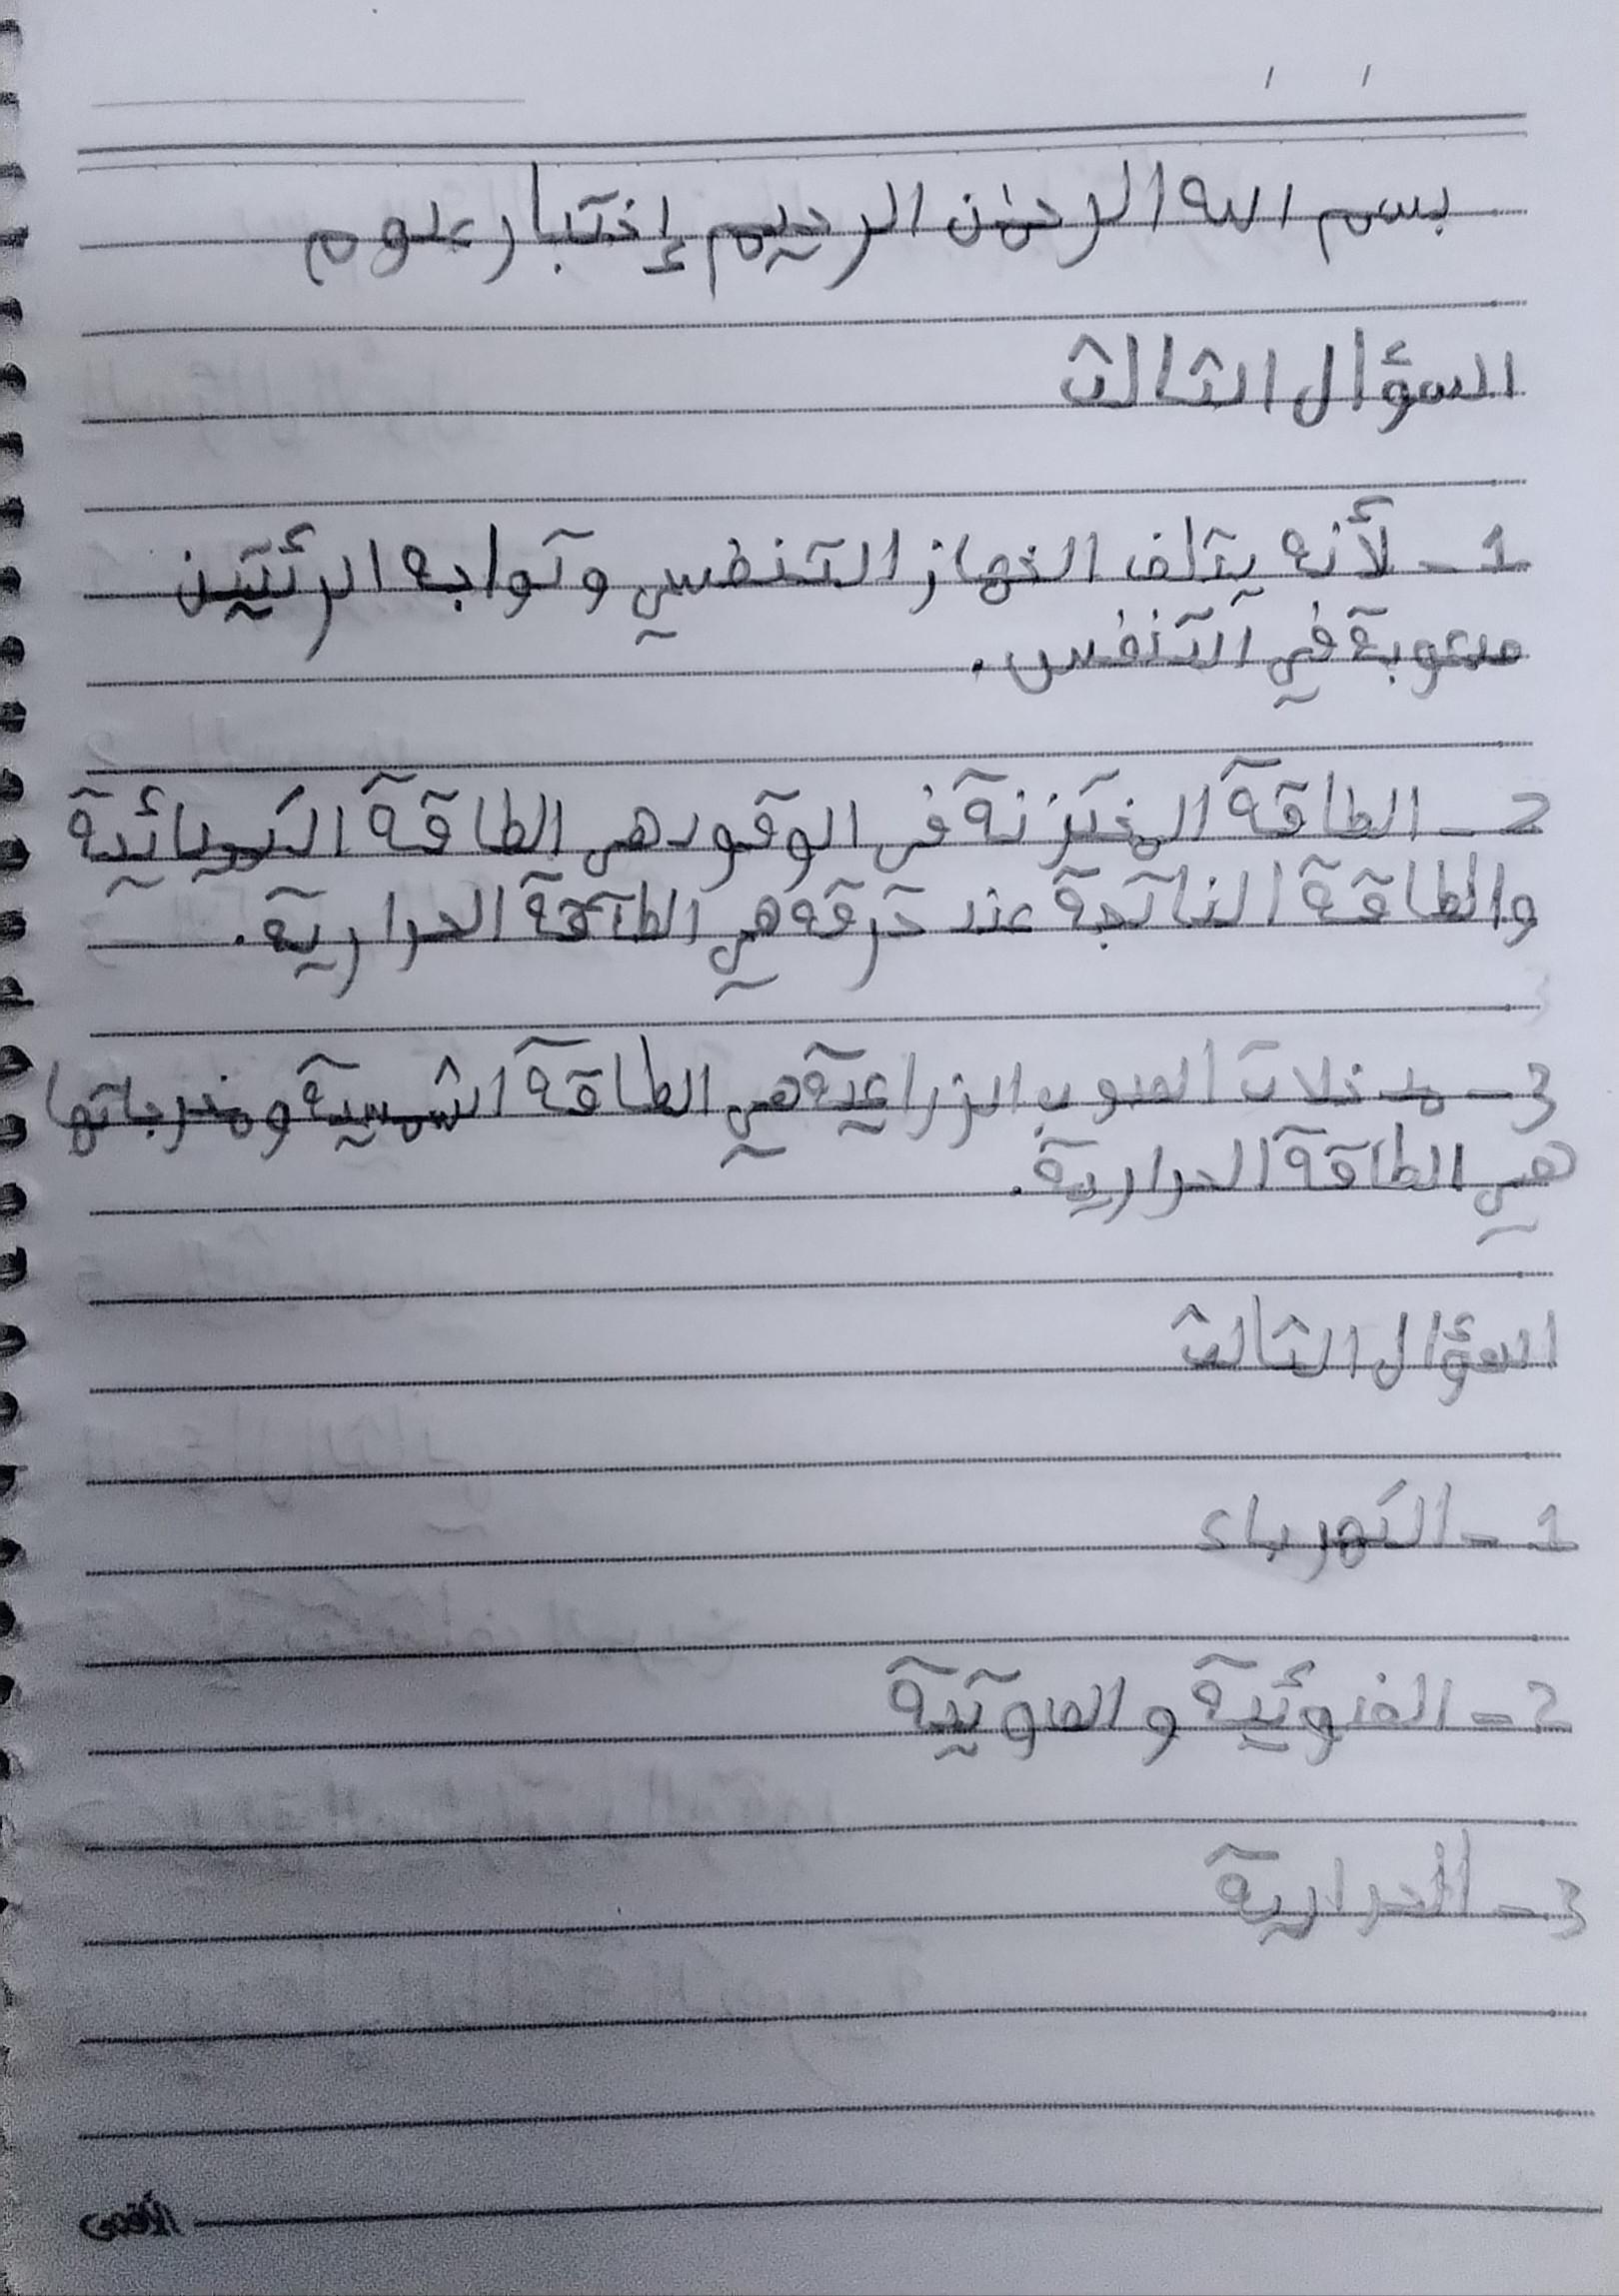 بسم الله الرحمن الرحيم إختبار علوم
السؤال الثالث
1 - لأنه يتلف الجهاز التنفسي وتواجه الرئتين
صعوبة في التنفس.
2 - الطاقة المختزنة في الوقود هي الطاقة الكيميائية
والطاقة الناتجة عند حرقه هي الطاقة الحرارية.
3 - مدخلات الصوب الزراعية هي الطاقة الشمسية ومخرجاتها
هي الطاقة الحرارية.
السؤال الثالث
1 - الكهرباء
2 - الضوئية و الصوتية
3 - الحرارية
الأقصى